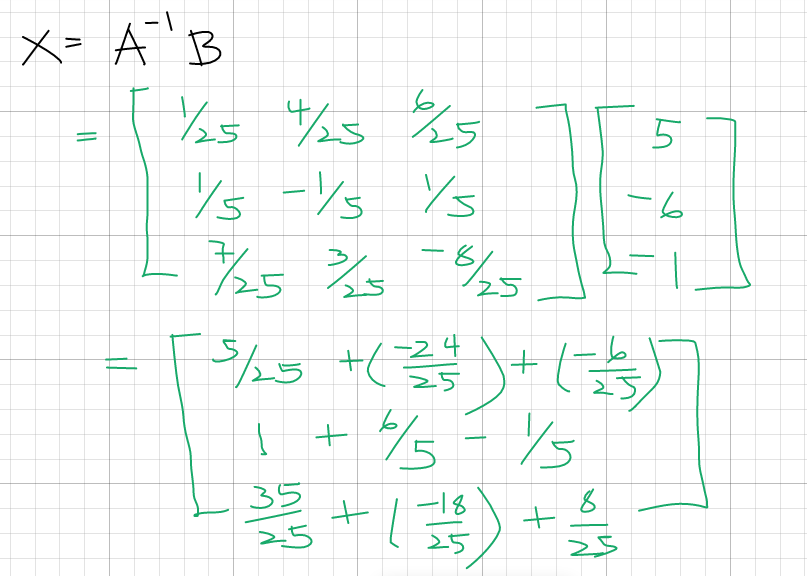 X = A⁻¹ B
= [ 1/25 4/25 6/25 ] [ 5 ]
[ 1/5 -1/5 1/5 ] [ -6 ]
[ 7/25 3/25 -8/25 ] [ -1 ]
= [ 5/25 + (-24/25) + (-6/25) ]
[ 1 + 6/5 - 1/5 ]
[ 35/25 + (-18/25) + 8/25 ]